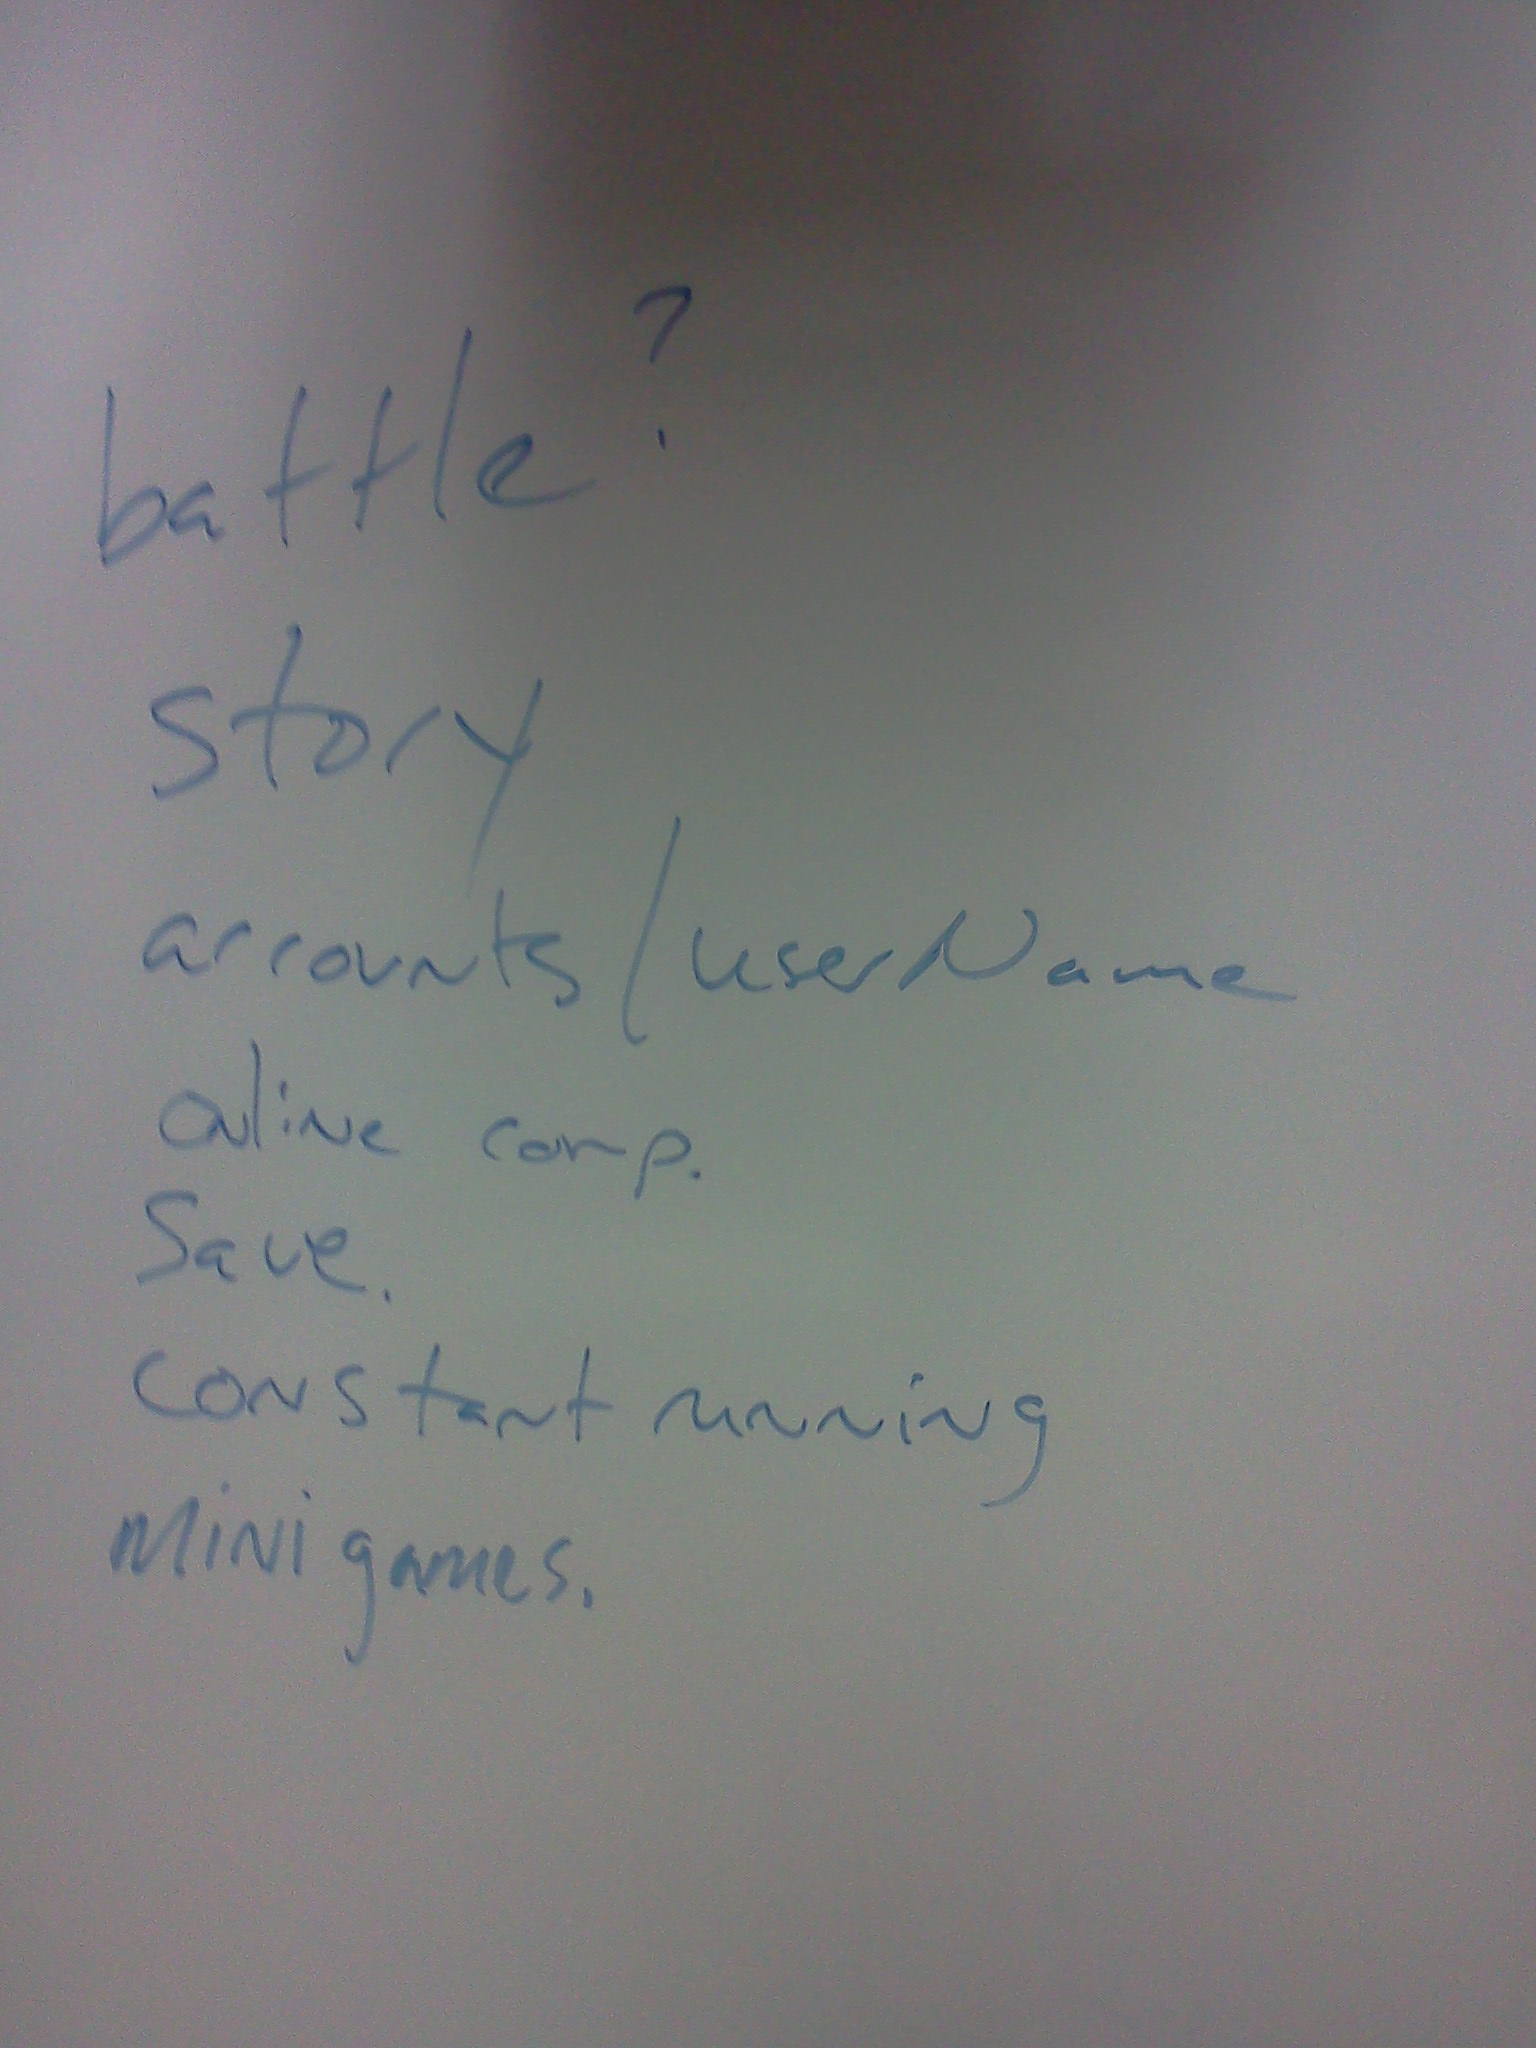 battle?
story
accounts/userName
online comp.
Save.
constant running
mini games.